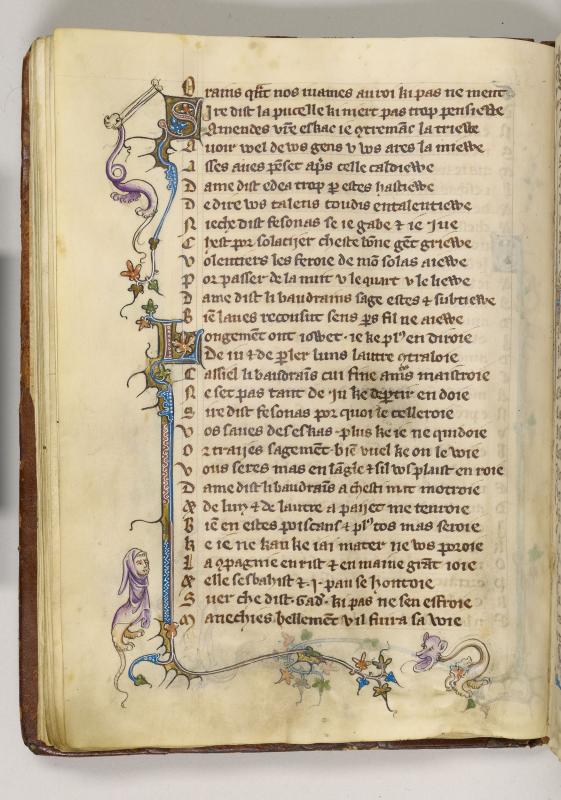 rams nos mames au roi ki pas ne ment
Sire dist la pucelle ki niert pas trop pensieWe
amendes vre eskac ie la trieWe
Auoir wel de ws gens v ws ares la mieWe
Asses aues celle caldieWe
Dame dist edea trop estes hastieWe
De dire ws talens toudis ententieWe
Nieche dist fesonas se ie gabe & ie iue
Chest por solacijer cheste gent grieWe
Volentiers les feroie de mon solas aieWe
Por passer de la nuit v le quart v le lieWe
Dame dist li baudrains sage estes & subtieWe
Bien laues reconsut sens fil ne aieWe
Longement ont ioWet ie ke en diroie
De iu & de parler luns lautre
Cassiel li baudrains cui fine amrs maistroie
Ne set pas tant de iu ke departir en doie
Sire dist fesonas por quoi le celleroie
Vos saues des eskas plus ke ie ne quidoie
Or traijes sagement bien vuel ke on le Wie
Vous seres mas en & sil ws plaist en roie
Dame dist li baudrains a chest motroie
& de luy & de lautre a paijet me tenroie
Bien en estes poissans & mas seroie
Ke ie ne kauke iai mater ne ws poroie
La en rist & en maine grant ioie
& elle sesbahist & pau se hontoie
Suer che dist Gad ki pas ne sen effroie
Manechies bellement v il finra sa Wie